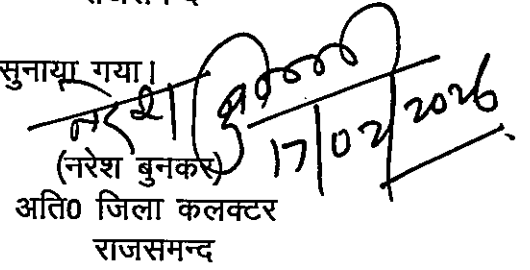 राजसमन्द
सुनाया गया।
नरेश
17/02/2026
(नरेश बुनकर)
अति0 जिला कलक्टर
राजसमन्द